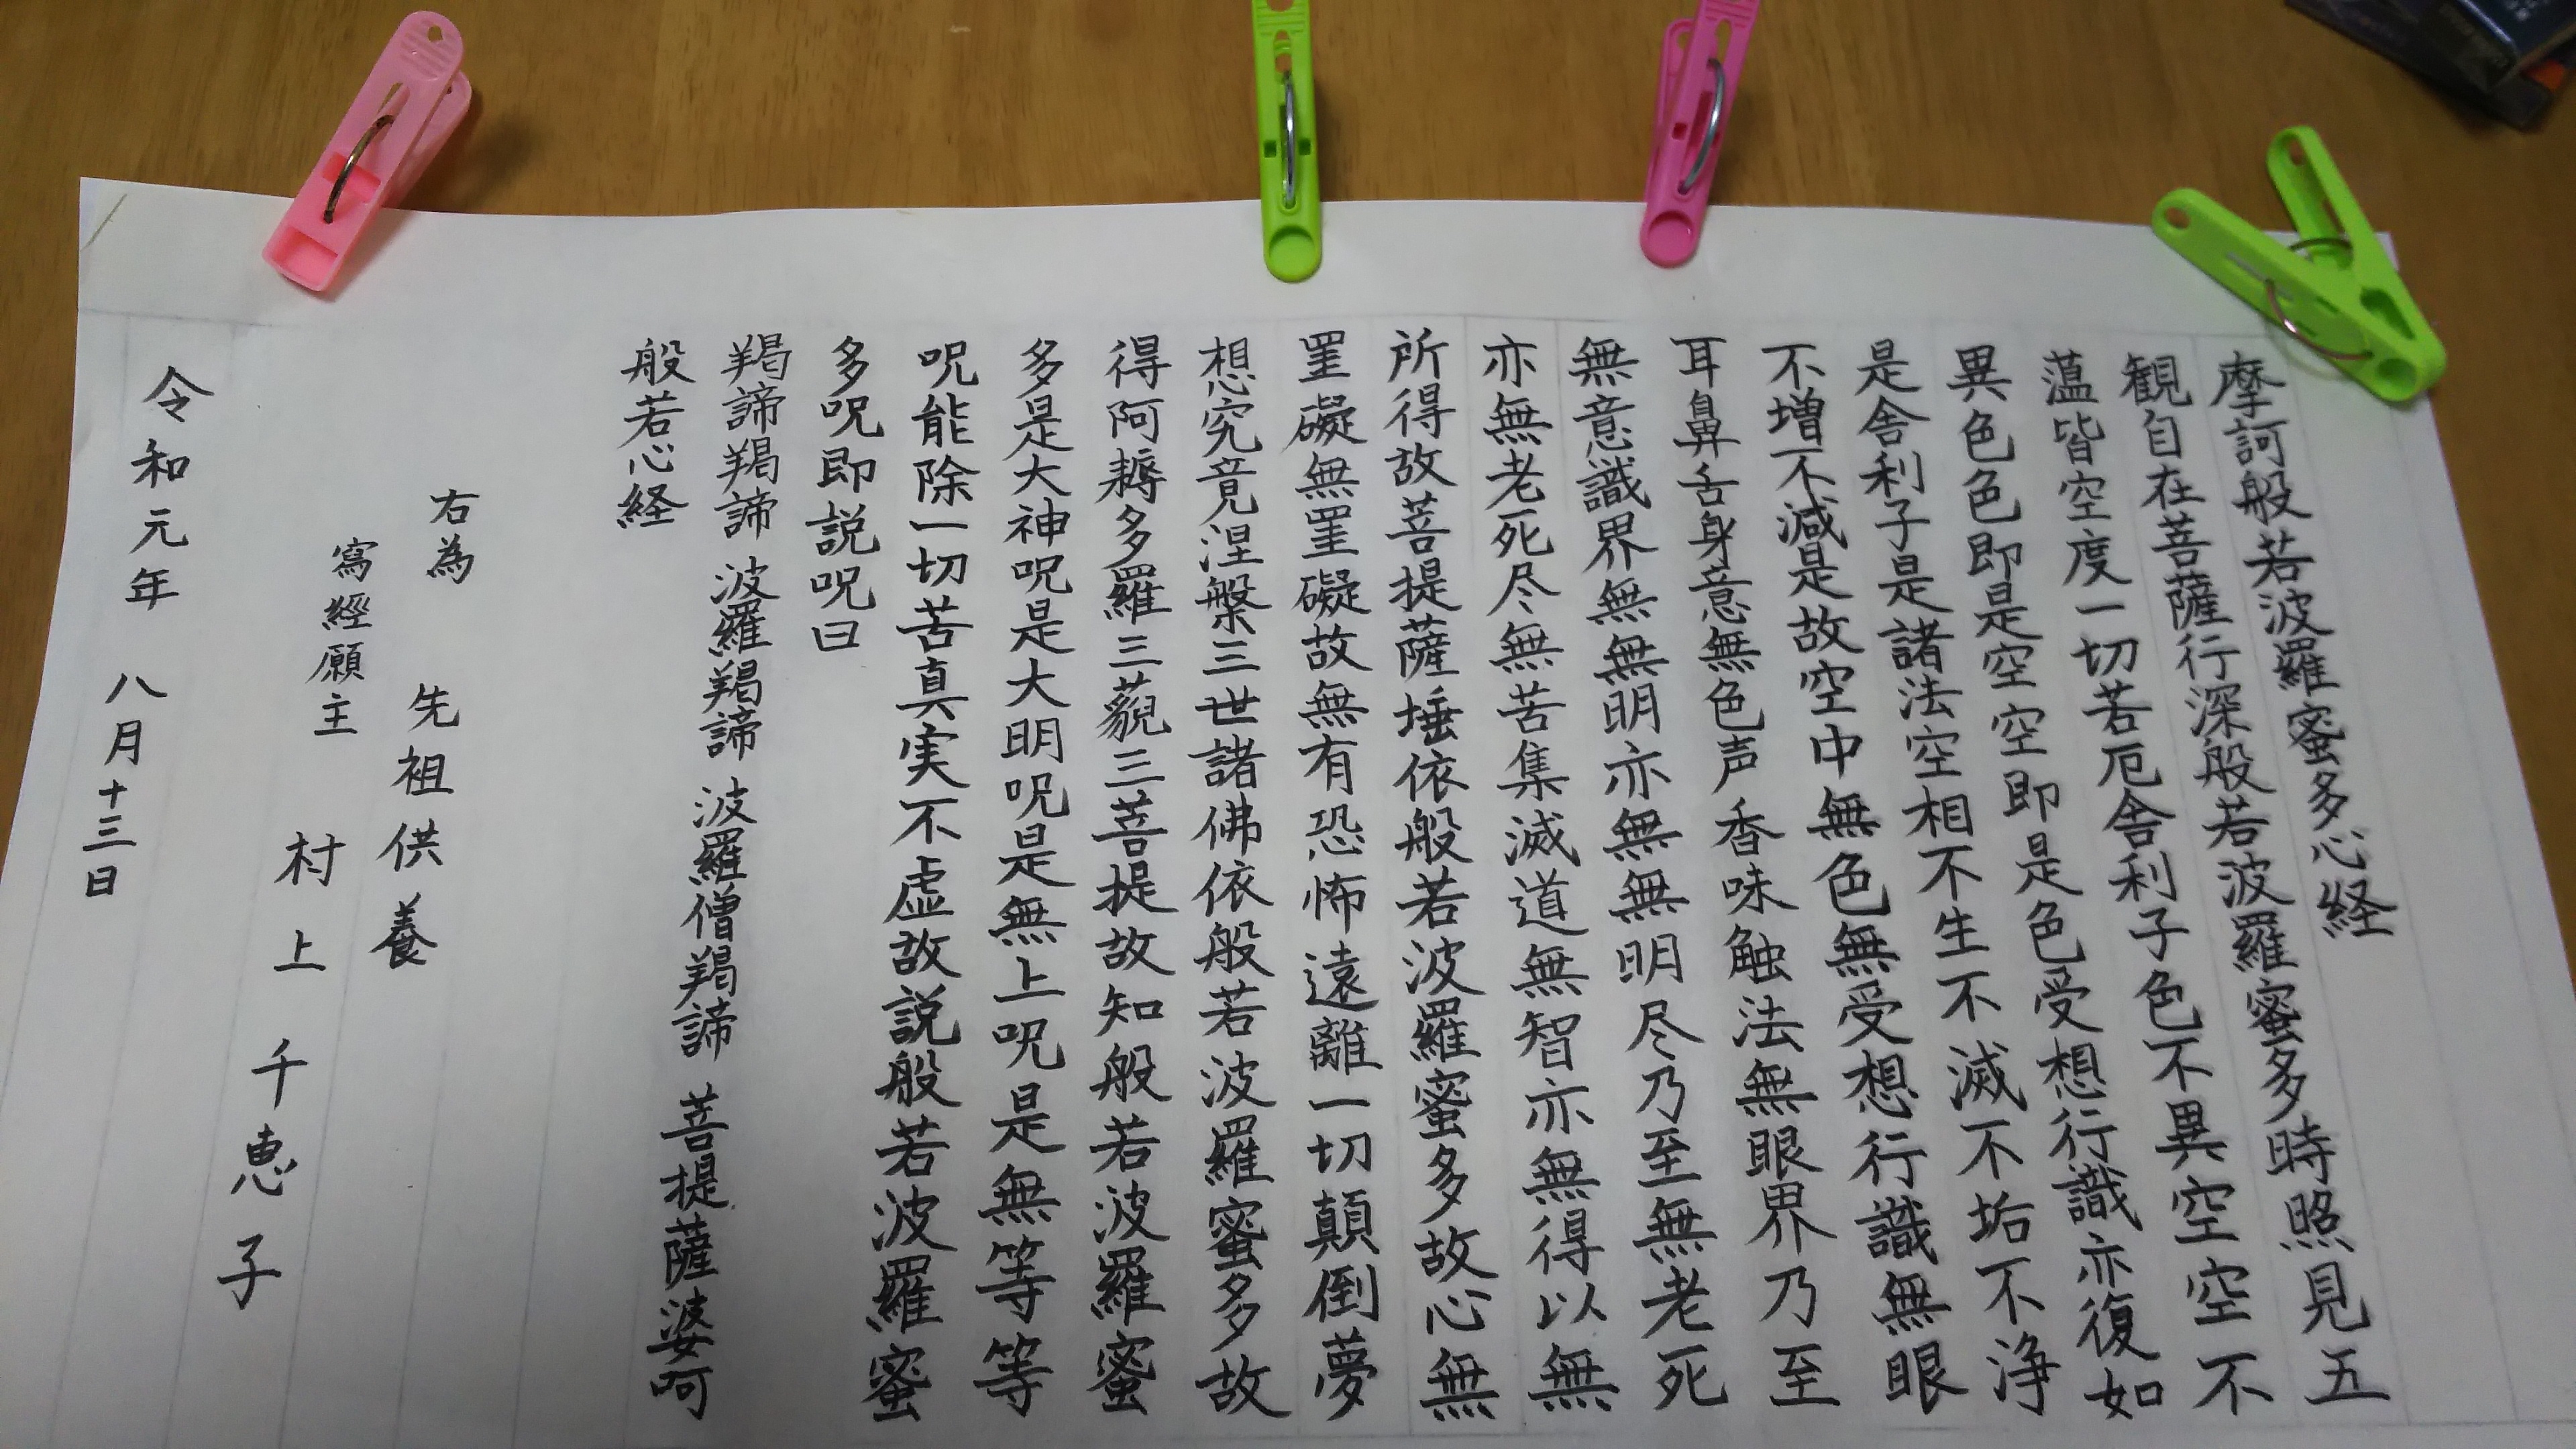 摩訶般若波羅蜜多心経
観自在菩薩行深般若波羅蜜多時照見五
薀皆空度一切苦厄舎利子色不異空空不
異色色即是空空即是色受想行識亦復如
是舎利子是諸法空相不生不滅不垢不浄
不増不減是故空中無色無受想行識無眼
耳鼻舌身意無色声香味触法無眼界乃至
無意識界無無明亦無無明尽乃至無老死
亦無老死尽無苦集滅道無智亦無得以無
所得故菩提薩埵依般若波羅蜜多故心無
罣礙無罣礙故無有恐怖遠離一切顛倒夢
想究竟涅槃三世諸佛依般若波羅蜜多故
得阿耨多羅三藐三菩提故知般若波羅蜜
多是大神呪是大明呪是無上呪是無等等
呪能除一切苦真実不虚故説般若波羅蜜
多呪即説呪曰
羯諦羯諦 波羅羯諦 波羅僧羯諦 菩提薩婆呵
般若心経
右為 先祖供養
寫經願主 村上 千恵子
令和元年 八月十三日